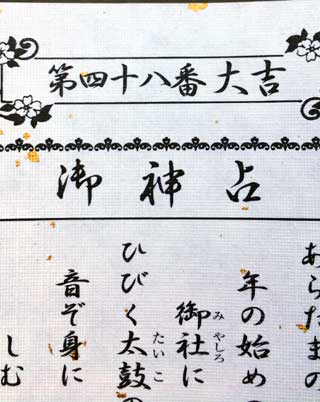 第四十八番大吉
御神占
あらたまの
年の始めの
御社に
みやしろ
ひびく太鼓の
たいこ
音ぞ身に
しむ